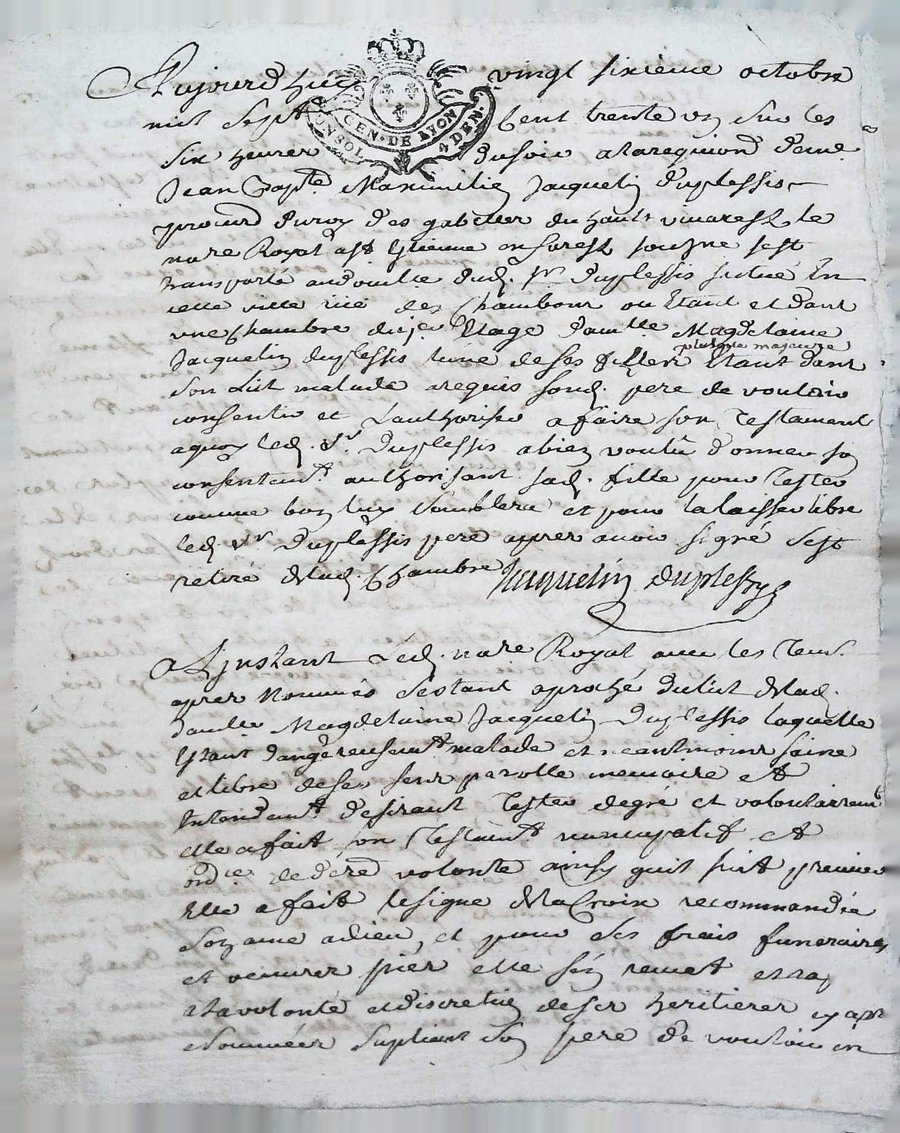 Aujourd huy vingt sixieme octobre
mil sept Cent trente un sur les
GEN. DE LYON
4 DEN.
six heures du soir a la requision de me
Jean Bapte Maximilien Jacquelin Duplessis
procur du roy des gabelles du hault vivarest le
nore Royal a St Etienne en forest soussne sest
transporté au domicille dud. sr Duplessis scitué en
cette ville rüe des Chambour ou Etant et dans
une Chambre du Etage damlle Magdelaine
Jacquelin duplessis lune de ses filles plusque majeure Etant dans
son Lit malade a requis sond. pere de vouloir
consentir et Lauthoriser a faire son Testament
a quoy led. Sr Duplessis a bien voulu donner son
consentemt authorisant sad. fille pour Tester
comme bon luy semblera et pour la laisser libre
led. Sr Duplessis pere apres avoir signé sest
retiré de lad. Chambre Jacquelin duplessy
A Linstant Led. nore Royal avec les Tem.
apres Nommés sestant aproché du lit de lad.
damlle Magdelaine Jacquelin Duplessis laquelle
Etant dangereusemt malade et neantmoins saine
et libre de ses sens parolle memoire et
Entendemt desirant Tester de gré et volontairemt
elle a fait son Testamt nuncupatif et
ordre de dere volonté ainsy quil suit premier
Elle a fait le signe de la Croix recommandée
son ame a dieu, et pour ses frais funeraires
et oeuvres pies elle sen remet
a la volonté et discretion de ses heritieres cy apr
Nommées supliant son pere de vouloir en